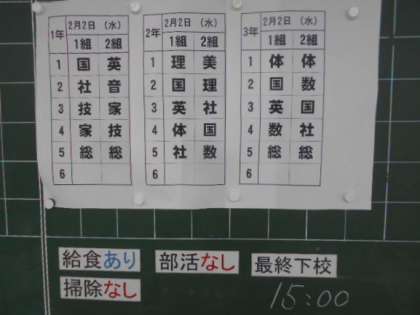 1年 2月2日（水）
1組 2組
1 国 英
2 社 音
3 技 家
4 家 技
5 総 総
6
2年 2月2日（水）
1組 2組
1 理 美
2 国 理
3 英 社
4 体 国
5 社 数
6
3年 2月2日（水）
1組 2組
1 体 体
2 国 数
3 英 国
4 数 社
5 総 総
6
給食あり 部活なし 最終下校
掃除なし 15:00